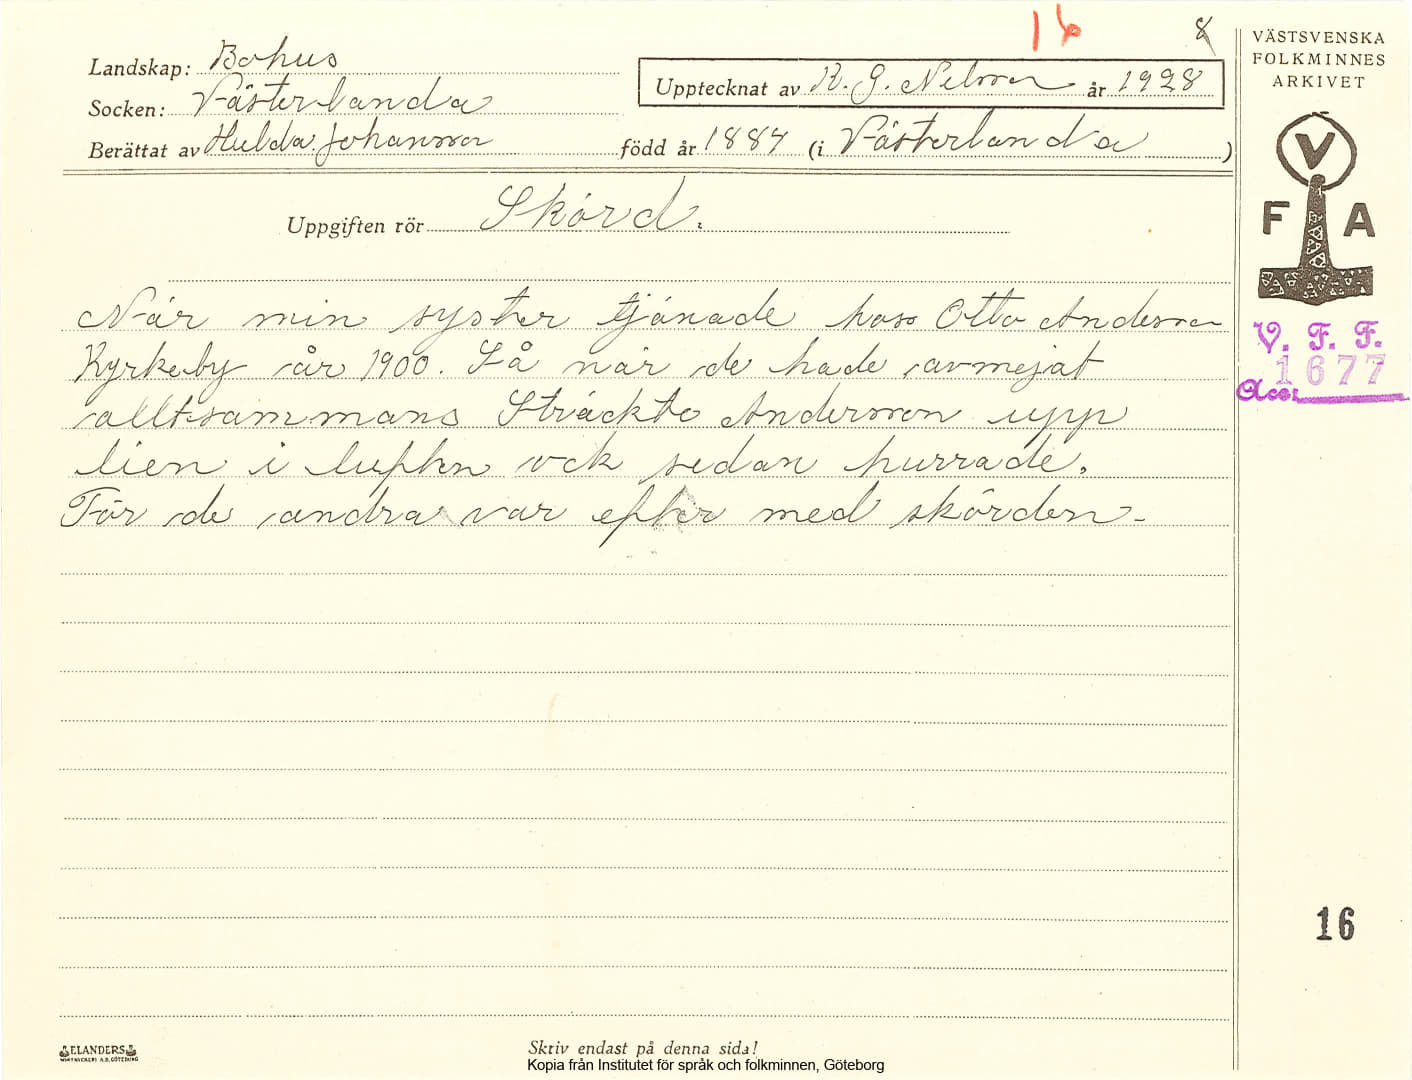 16 8
Landskap: Bohus
Socken: Västerlanda
Berättat av Hulda Johansson född år 1887 (i Västerlanda)
Upptecknat av K. G. Nelson år 1928
Uppgiften rör Skörd.
När min syster tjänade hoss Otto Anderson
Kyrkeby år 1900. Så när de hade avmejat
alltsammans Sträckte Andersson upp
lien i luften ock sedan hurrade.
För de andra var efter med skörden-
VÄSTSVENSKA
FOLKMINNES
ARKIVET
V
F A
V. F. F.
1677
Acc:
16
ELANDERS
Skriv endast på denna sida!
Kopia från Institutet för språk och folkminnen, Göteborg